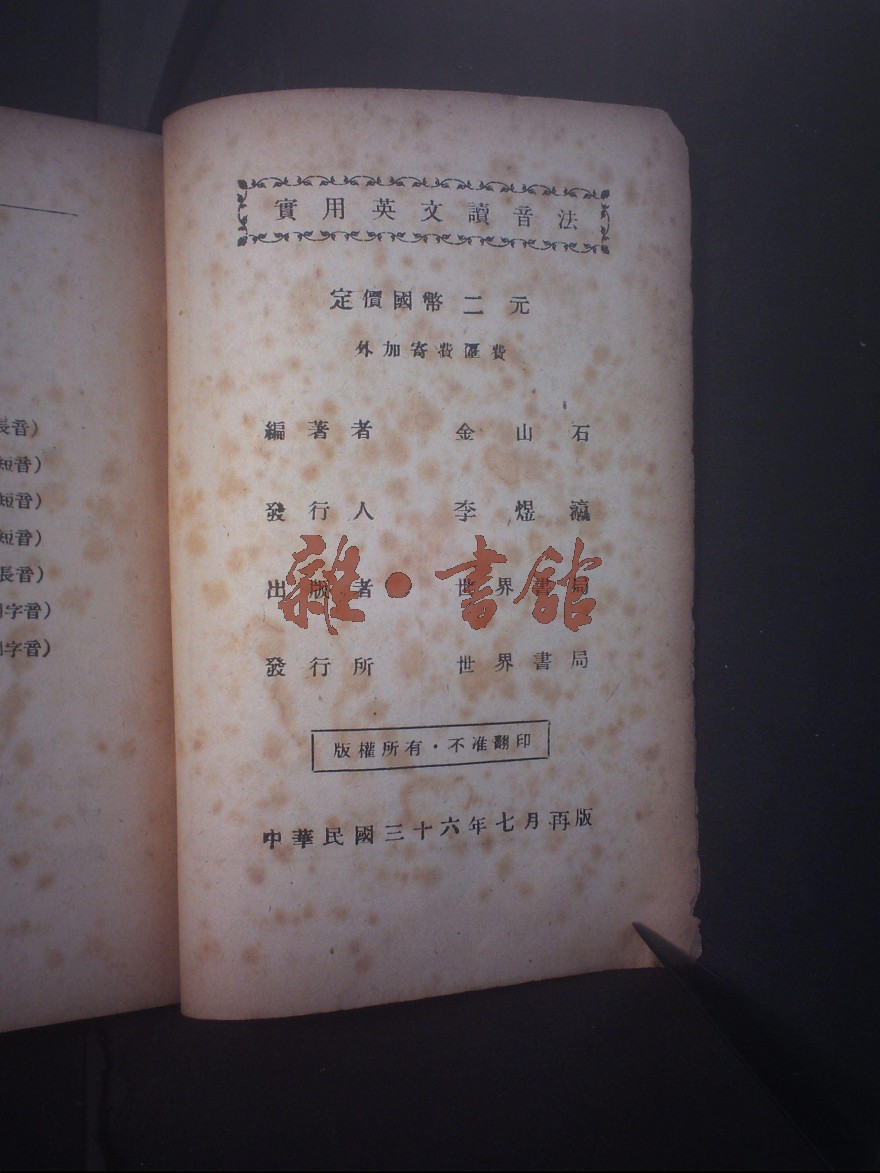 長音)
短音)
短音)
短音)
長音)
字音)
字音)
實用英文讀音法
定價國幣二元
外加寄費匯費
編著者 金山石
發行人 李煜瀛
出版者 世界書局
雜·書館
發行所 世界書局
版權所有·不准翻印
中華民國三十六年七月再版